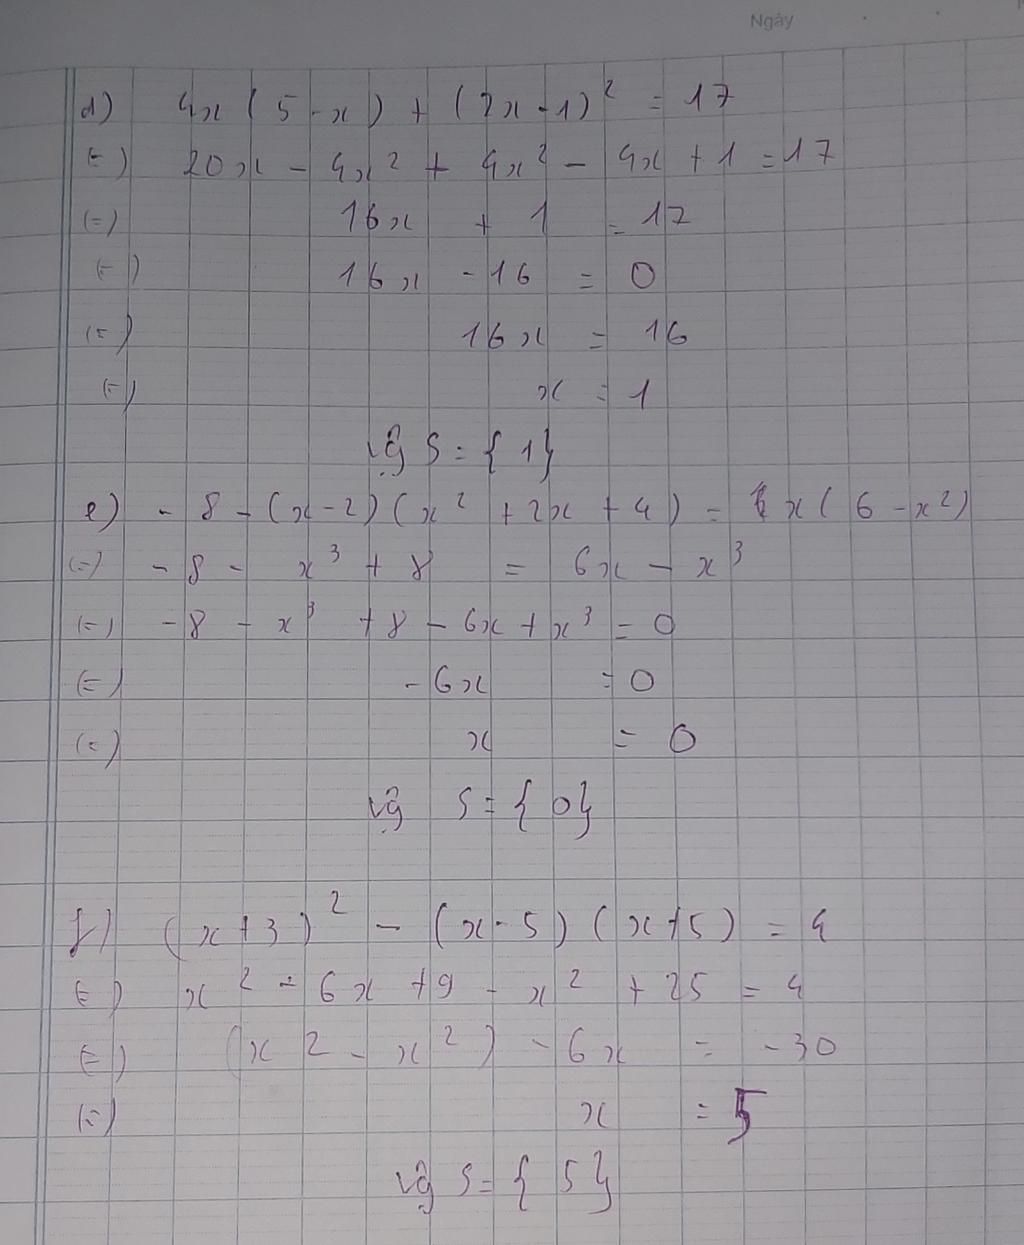 Ngày
d) 4x(5-x)+(2x-1)² = 17
(=) 20x - 4x² + 4x² - 4x + 1 = 17
(=) 16x + 1 = 17
(=) 16x - 16 = 0
(=) 16x = 16
(=) x = 1
Vậy S = {1}
e) -8-(x-2)(x² + 2x + 4) = x(6-x²)
(=) -8 - x³ + 8 = 6x - x³
(=) -8 - x³ + 8 - 6x + x³ = 0
(=) -6x = 0
(=) x = 0
Vậy S = {0}
f) (x+3)² - (x-5)(x+5) = 4
(=) x² - 6x + 9 - x² + 25 = 4
(=) (x² - x²) - 6x = -30
(=) x = 5
Vậy S = {5}